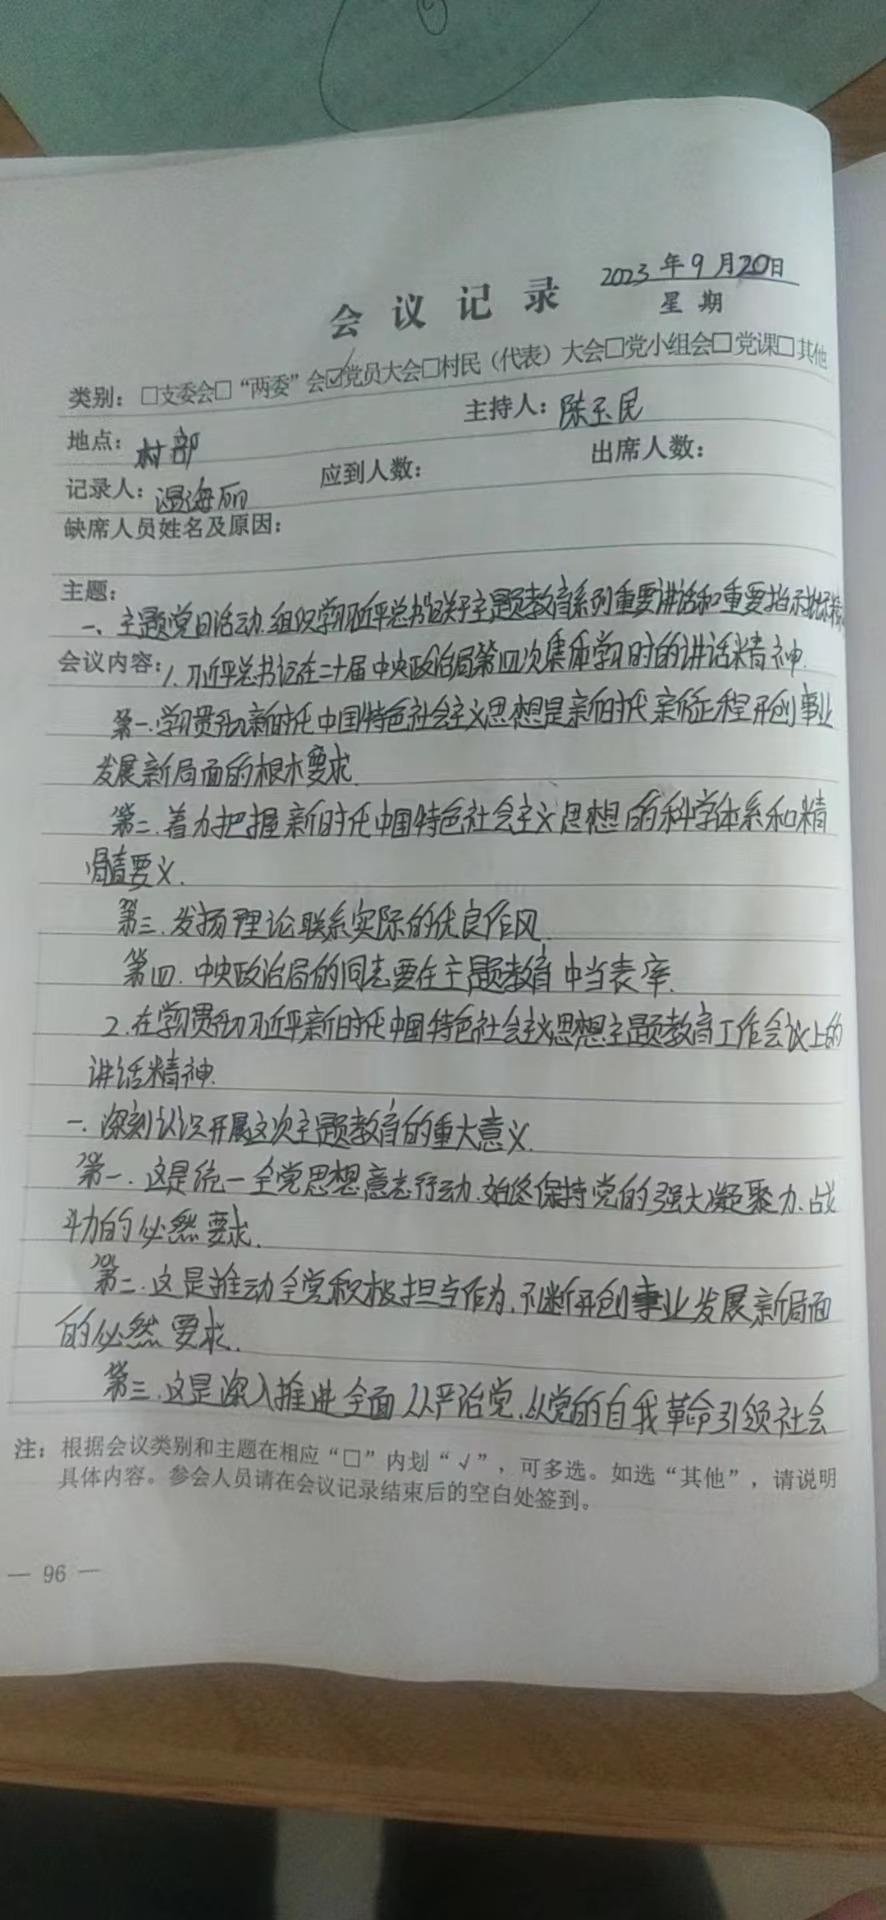 2023年9月20日
会议记录
星期
类别：□支委会□“两委”会☑党员大会□村民（代表）大会□党小组会□党课□其他
地点：村部 主持人：陈玉民
记录人：温海丽 应到人数： 出席人数：
缺席人员姓名及原因：
主题：
一、主题党日活动.组织学习习近平总书记关于主题教育系列重要讲话和重要指示批示精
会议内容：1.习近平总书记在二十届中央政治局第四次集体学习时的讲话精神.
第一.学习贯彻新时代中国特色社会主义思想是新时代新征程开创事业
发展新局面的根本要求
第二.着力把握新时代中国特色社会主义思想的科学体系和精
髓要义.
第三.发扬理论联系实际的优良作风
第四.中央政治局的同志要在主题教育中当表率.
2.在学习贯彻习近平新时代中国特色社会主义思想主题教育工作会议上的
讲话精神.
一.深刻认识开展这次主题教育的重大意义.
第一.这是统一全党思想意志行动.始终保持党的强大凝聚力、战
斗力的必然要求.
第二.这是推动全党积极担当作为.不断开创事业发展新局面
的必然要求.
第三.这是深入推进全面从严治党.以党的自我革命引领社会
注：根据会议类别和主题在相应“□”内划“√”，可多选。如选“其他”，请说明
具体内容。参会人员请在会议记录结束后的空白处签到。
— 96 —